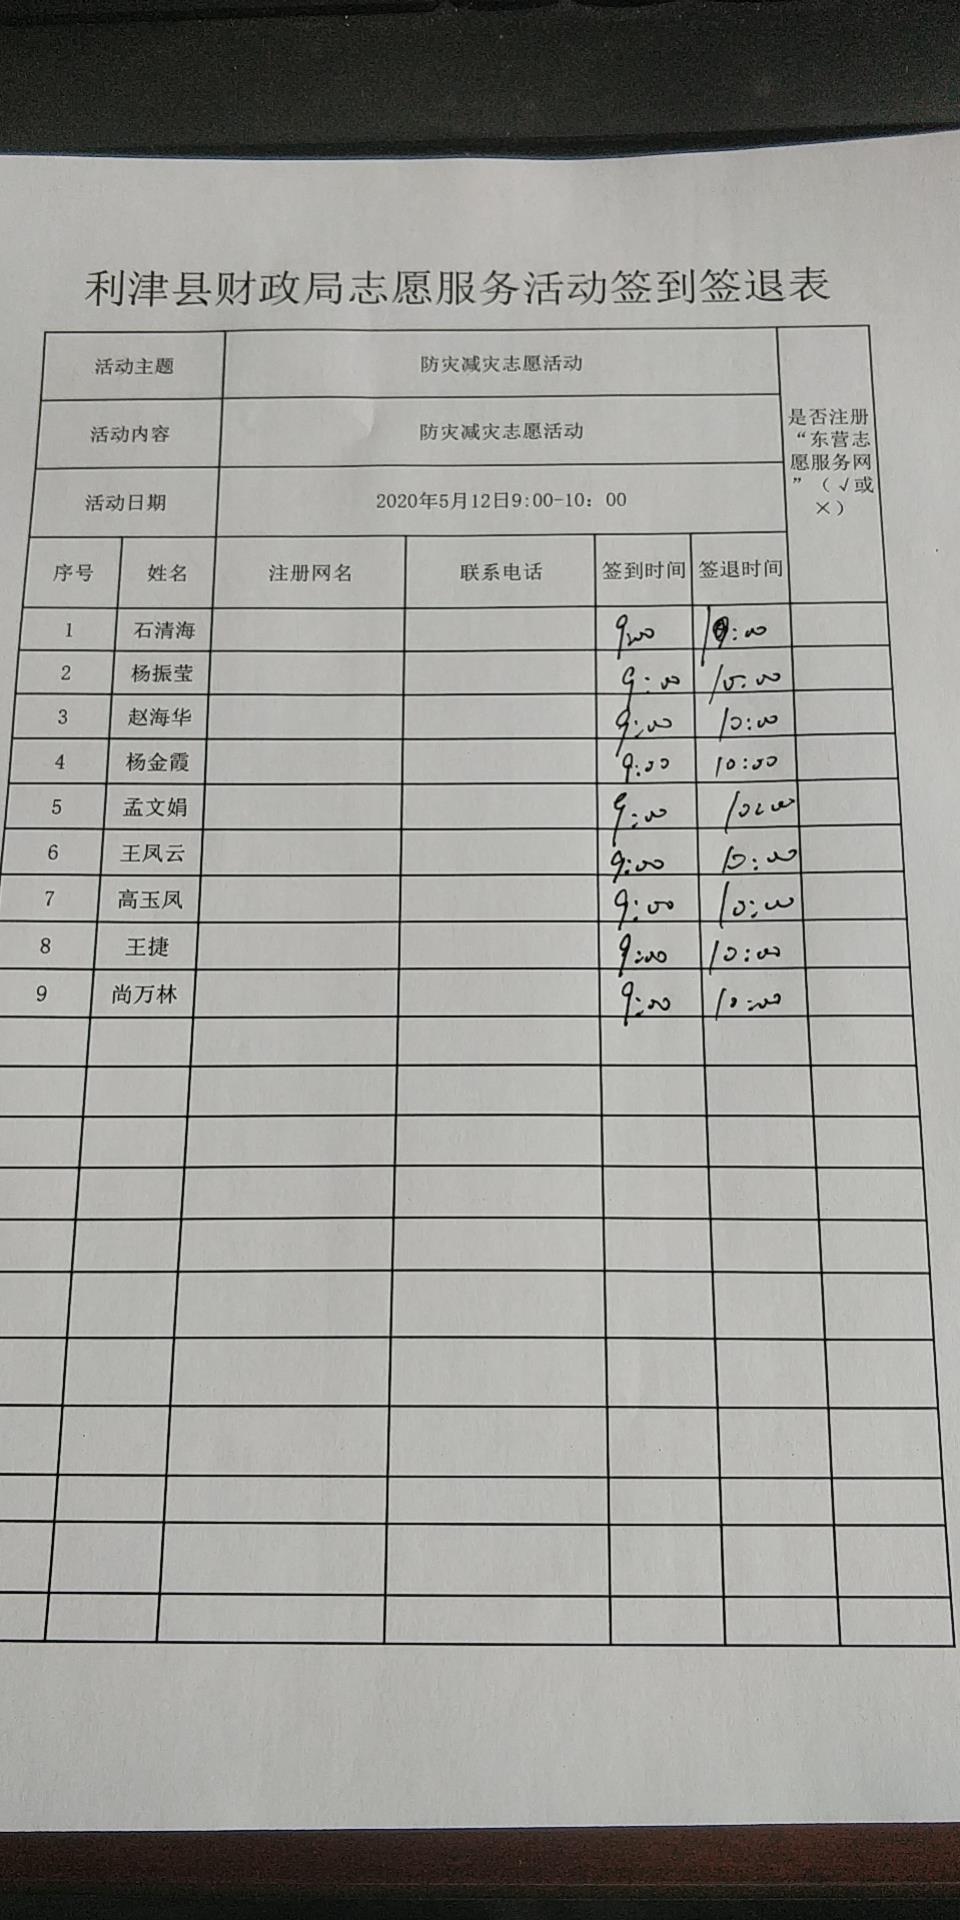 利津县财政局志愿服务活动签到签退表
活动主题 防灾减灾志愿活动
活动内容 防灾减灾志愿活动
活动日期 2020年5月12日9:00-10：00
是否注册
“东营志
愿服务网
”（√或
×）
序号 姓名 注册网名 联系电话 签到时间 签退时间
1 石清海 9:00 10:00
2 杨振莹 9:00 10:00
3 赵海华 9:00 10:00
4 杨金霞 9:00 10:00
5 孟文娟 9:00 10:00
6 王凤云 9:00 10:00
7 高玉凤 9:00 10:00
8 王捷 9:00 10:00
9 尚万林 9:00 10:00